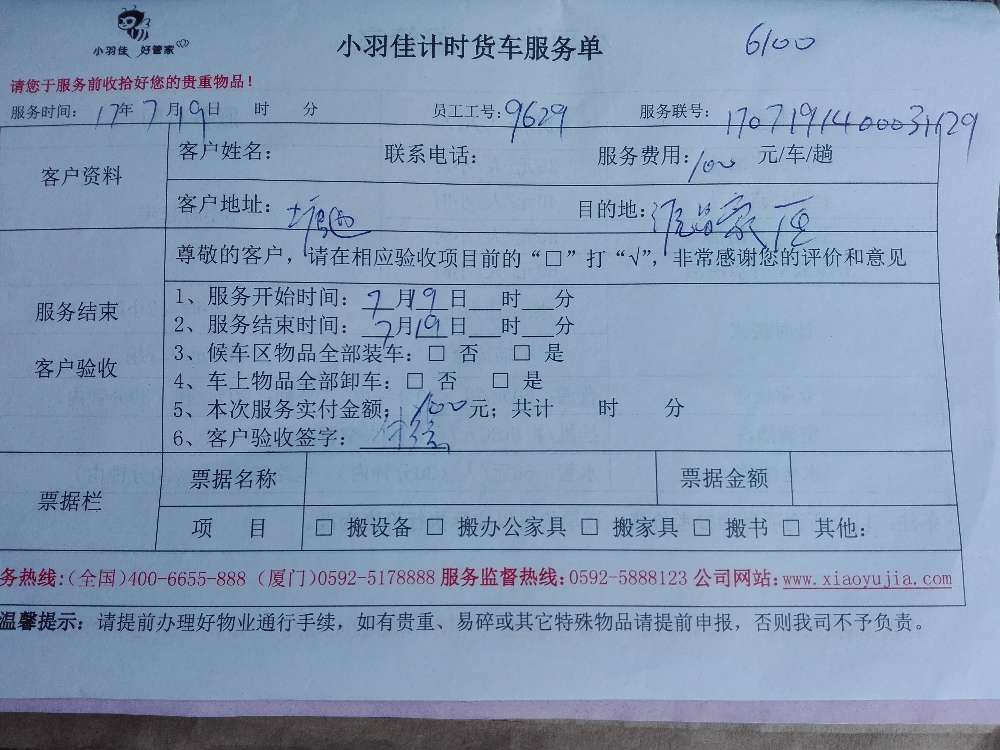 小羽佳 好管家
小羽佳计时货车服务单 6100
请您于服务前收拾好您的贵重物品！
服务时间： 17年 7 月 19日 时 分 员工工号：9629 服务联号：
客户资料
客户姓名： 联系电话： 服务费用：100 元/车/趟
客户地址： 目的地：
尊敬的客户，请在相应验收项目前的“□”打“√”，非常感谢您的评价和意见
服务结束
客户验收
1、服务开始时间：7 月19 日___时___分
2、服务结束时间：7 月19 日___时___分
3、候车区物品全部装车：□ 否 □ 是
4、车上物品全部卸车：□ 否 □ 是
5、本次服务实付金额：100元；共计 时 分
6、客户验收签字：
票据栏
票据名称 票据金额
项 目 □ 搬设备 □ 搬办公家具 □ 搬家具 □ 搬书 □ 其他：
务热线：（全国）400-6655-888（厦门）0592-5178888 服务监督热线：0592-5888123 公司网站：www.xiaoyujia.com
温馨提示：请提前办理好物业通行手续，如有贵重、易碎或其它特殊物品请提前申报，否则我司不予负责。